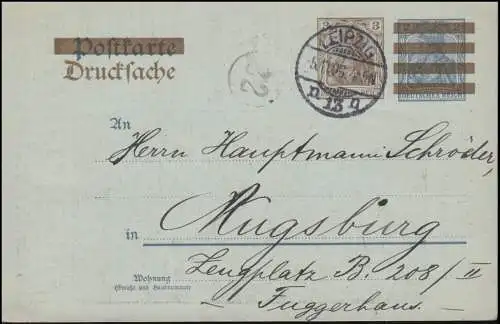 Postkarte
Drucksache
3 3
LEIPZIG
13
An
Herrn Hauptmann Schröder,
in Augsburg
Wohnung
(Straße und Hausnummer)
Zeugplatz B. 208/II
Fuggerhaus.